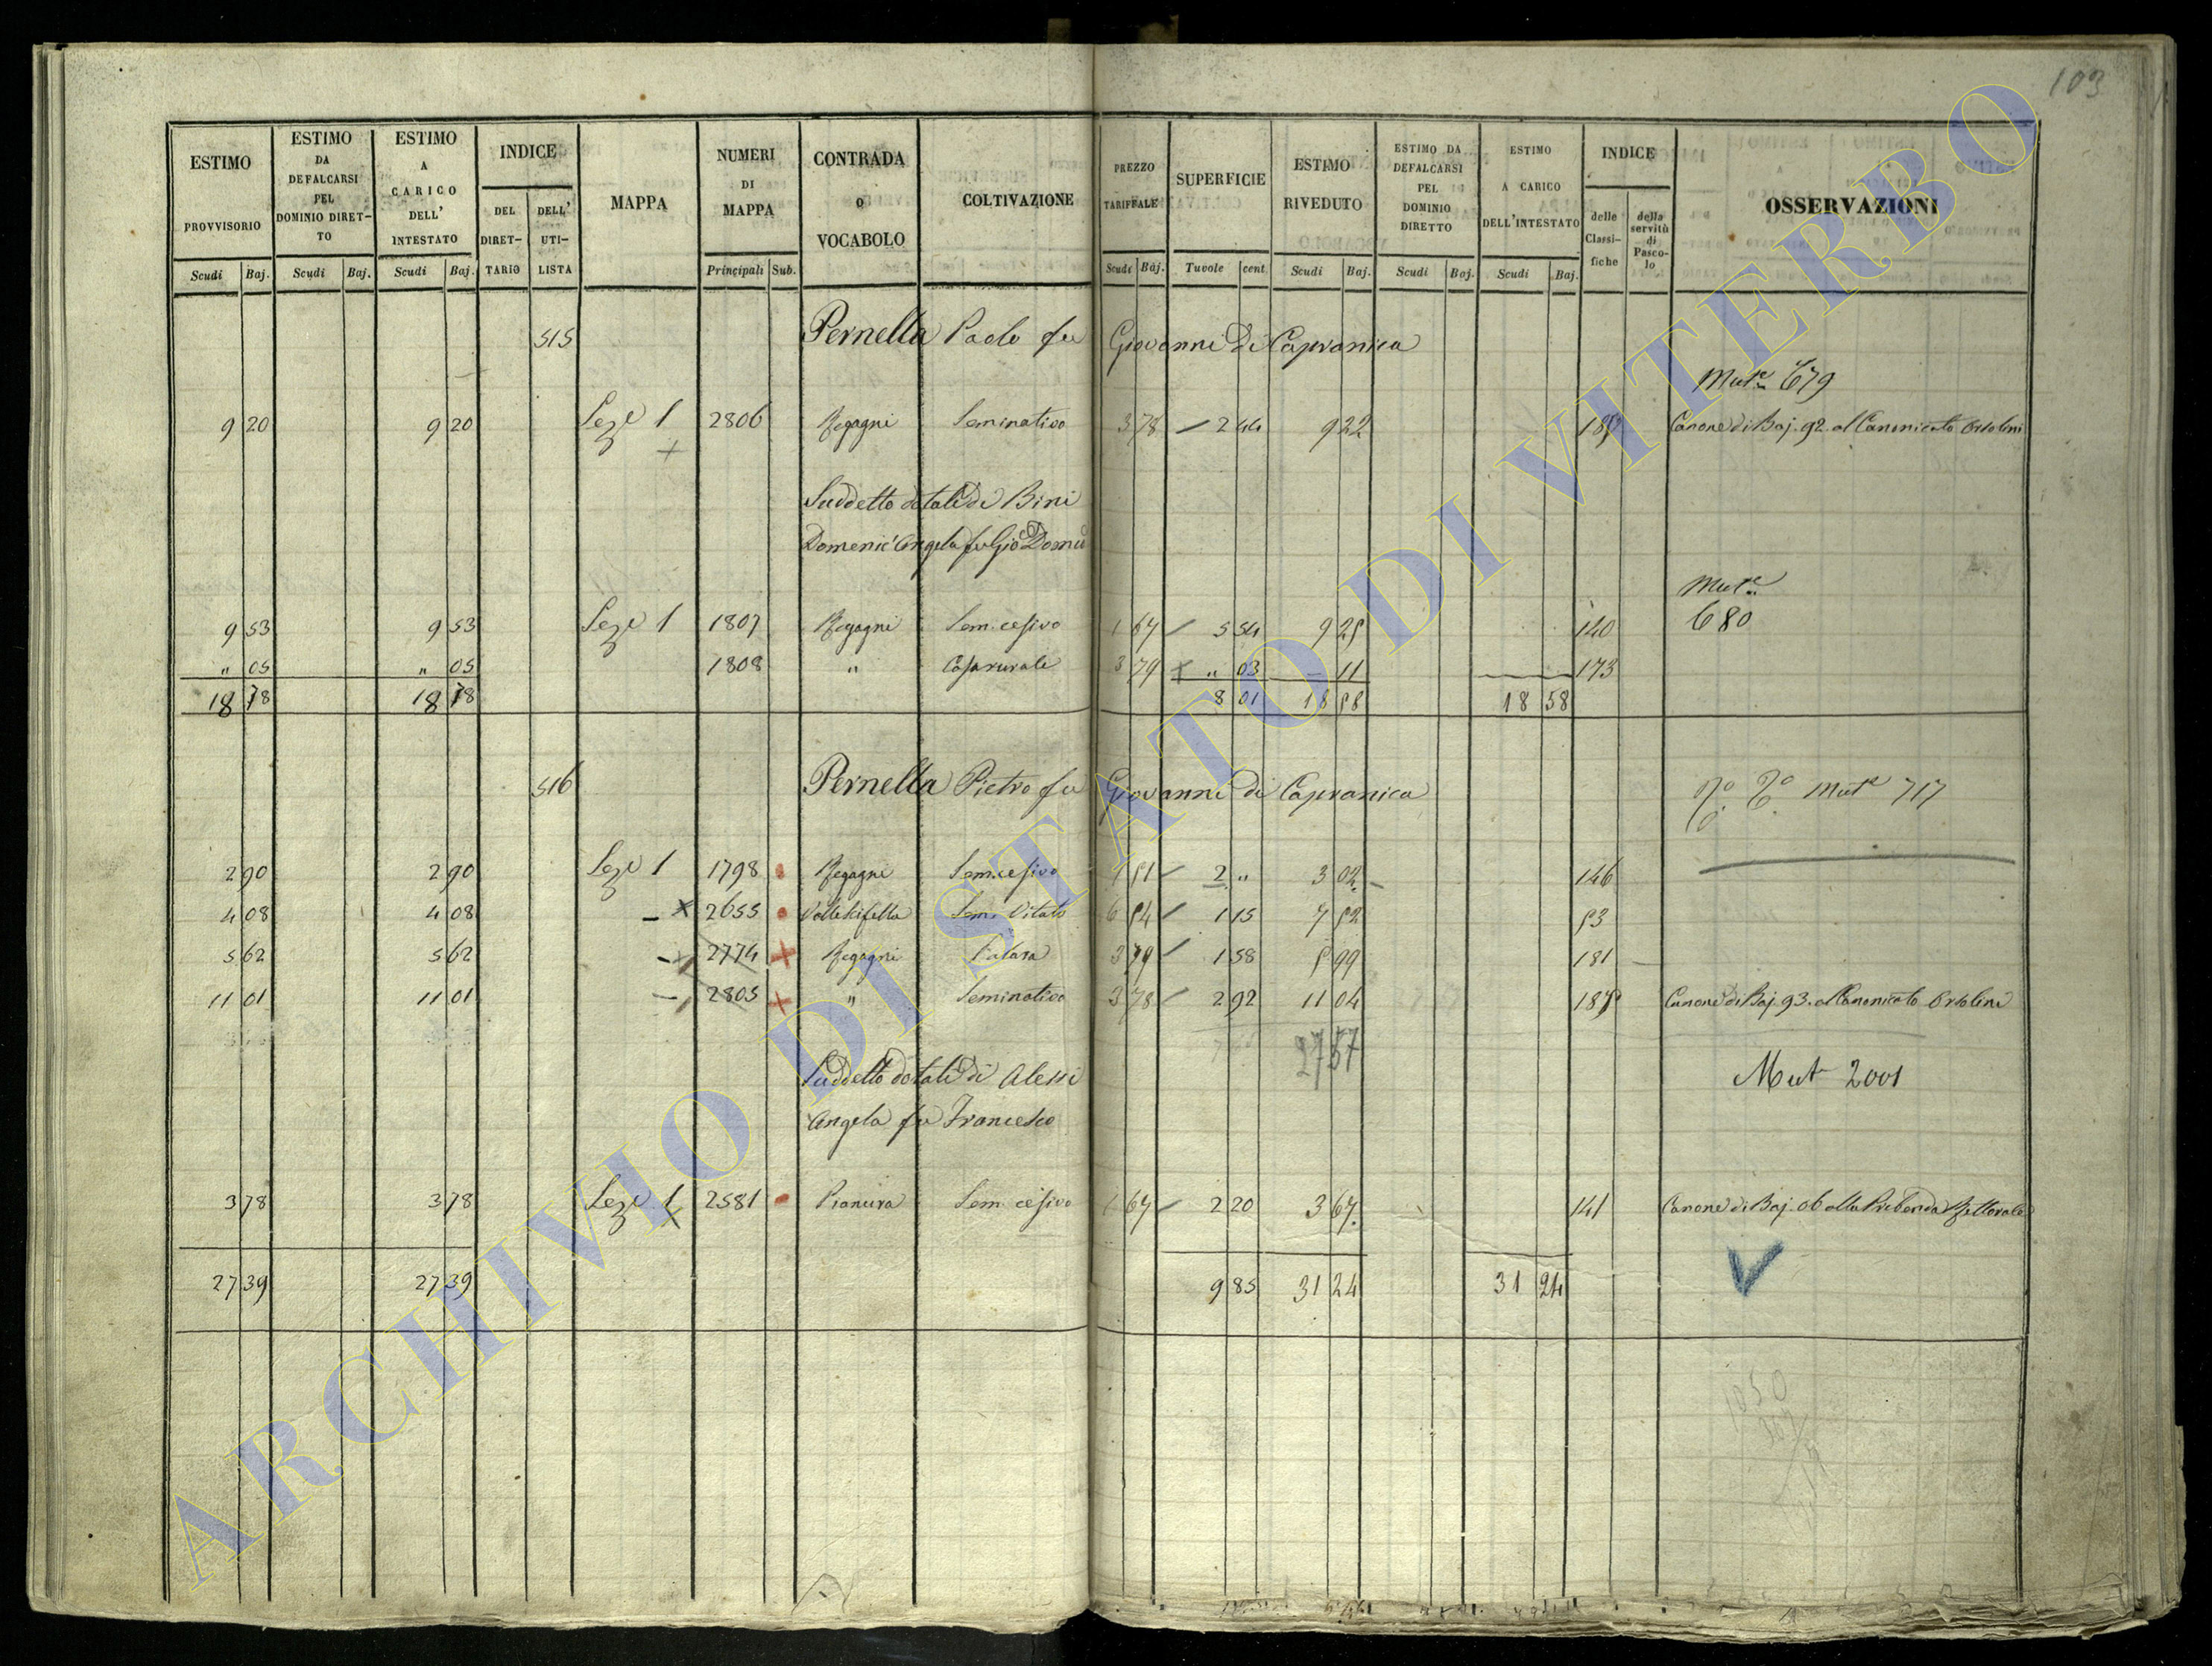 103
ESTIMO PROVVISORIO Scudi Baj.
ESTIMO DA DEFALCARSI PEL DOMINIO DIRETTO Scudi Baj.
ESTIMO A CARICO DELL' INTESTATO Scudi Baj.
INDICE DEL DIRETTARIO DELL' UTILISTA
MAPPA
NUMERI DI MAPPA Principali Sub.
CONTRADA O VOCABOLO
COLTIVAZIONE
PREZZO TARIFFALE Scudi Baj.
SUPERFICIE Tavole cent
ESTIMO RIVEDUTO Scudi Baj.
ESTIMO DA DEFALCARSI PEL DOMINIO DIRETTO Scudi Baj.
ESTIMO A CARICO DELL'INTESTATO Scudi Baj.
INDICE delle Classifiche della servitù di Pascolo
OSSERVAZIONI
515 Pernella Paolo fu Giovanni Di Capranica
Mut.e 679
9 20 9 20 Seze 1 2806 Regagni Seminativo 3 78 2 44 9 22 Canone di Baj. 92 al Canonicato Ortolini
Suddetto dotali di Bini
Domenic'Angela fu Gio Dom.co
Mut.e
680
9 53 9 53 Seze 1 1807 Regagni Sem. cesivo 1 67 5 54 9 25 140
" 05 " 05 1808 " Casa rurale 3 79 " 03 11 173
18 78 18 78 8 01 18 58 18 58
516 Pernella Pietro fu Giovanni Di Capranica
Mut.e 717
2 90 2 90 Seze 1 1798 Regagni Sem. cesivo 1 51 2 " 3 02 146
4 08 4 08 2655 Sem. Vitato 6 54 1 15 7 52 53
5 62 5 62 2774 Regagni 3 79 1 58 5 99 181
11 01 11 01 2805 " Seminativo 3 78 2 92 11 04 Canone di Baj. 93 al Canonicato Ortolini
27 57
Suddetto dotali di Alessi
Angela fu Francesco
Mut 2001
3 78 3 78 Seze 1 2581 Pianura Sem. cesivo 1 67 2 20 3 67 141 Canone di Baj. 06 alla Prebenda Rettorale
27 39 27 39 9 85 31 24 31 24
ARCHIVIO DI STATO DI VITERBO